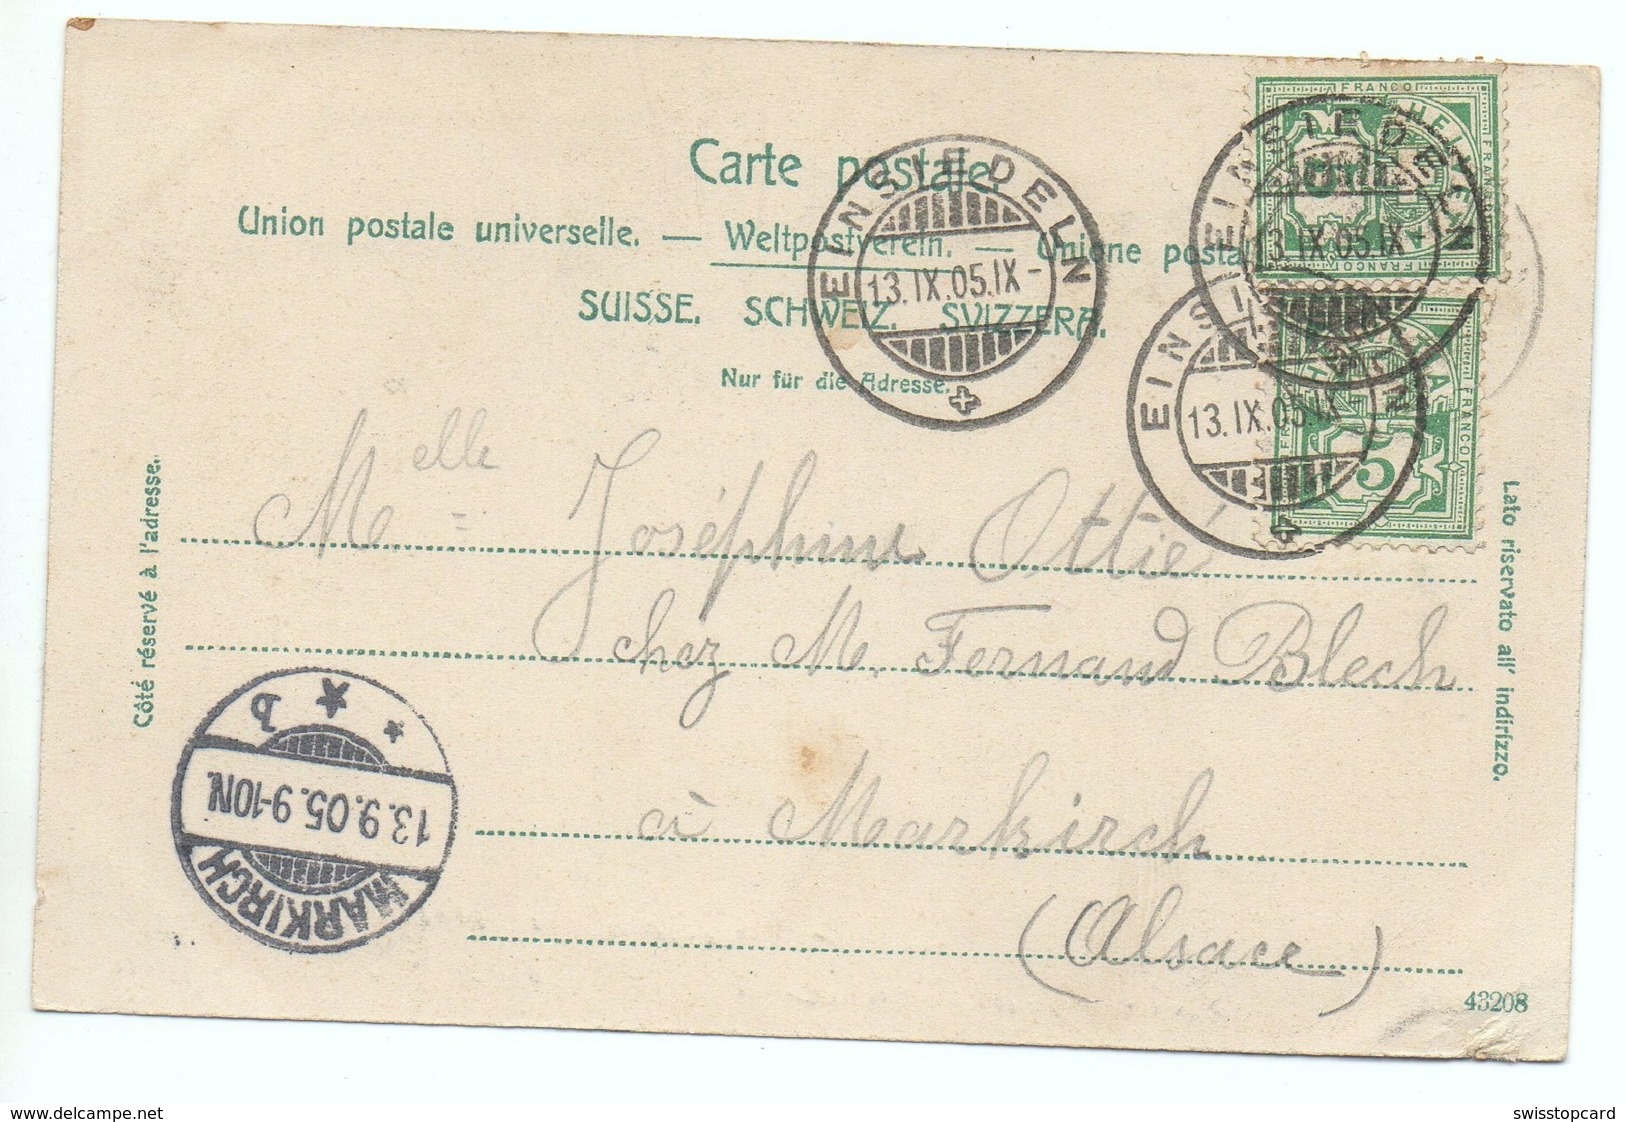 Carte postale.
Union postale universelle. — Weltpostverein. — Unione posta
SUISSE. SCHWEIZ. SVIZZERA.
Nur für die Adresse.
EINSIEDELN
13.IX.05.IX-
EINSIEDELN
13.IX.05.IX-
EINSIEDELN
13.IX.05.IX
FRANCO
HELVETIA
FRANCO
FRANCO
FRANCO
5
Melle Joséphine Ottié
chez M. Fernand Blech
à Markirch
(Alsace)
Côté réservé à l'adresse.
Lato riservato all' indirizzo.
MARKIRCH
13.9.05.9-10N.
b
43208
delcampe.net
swisstopcard